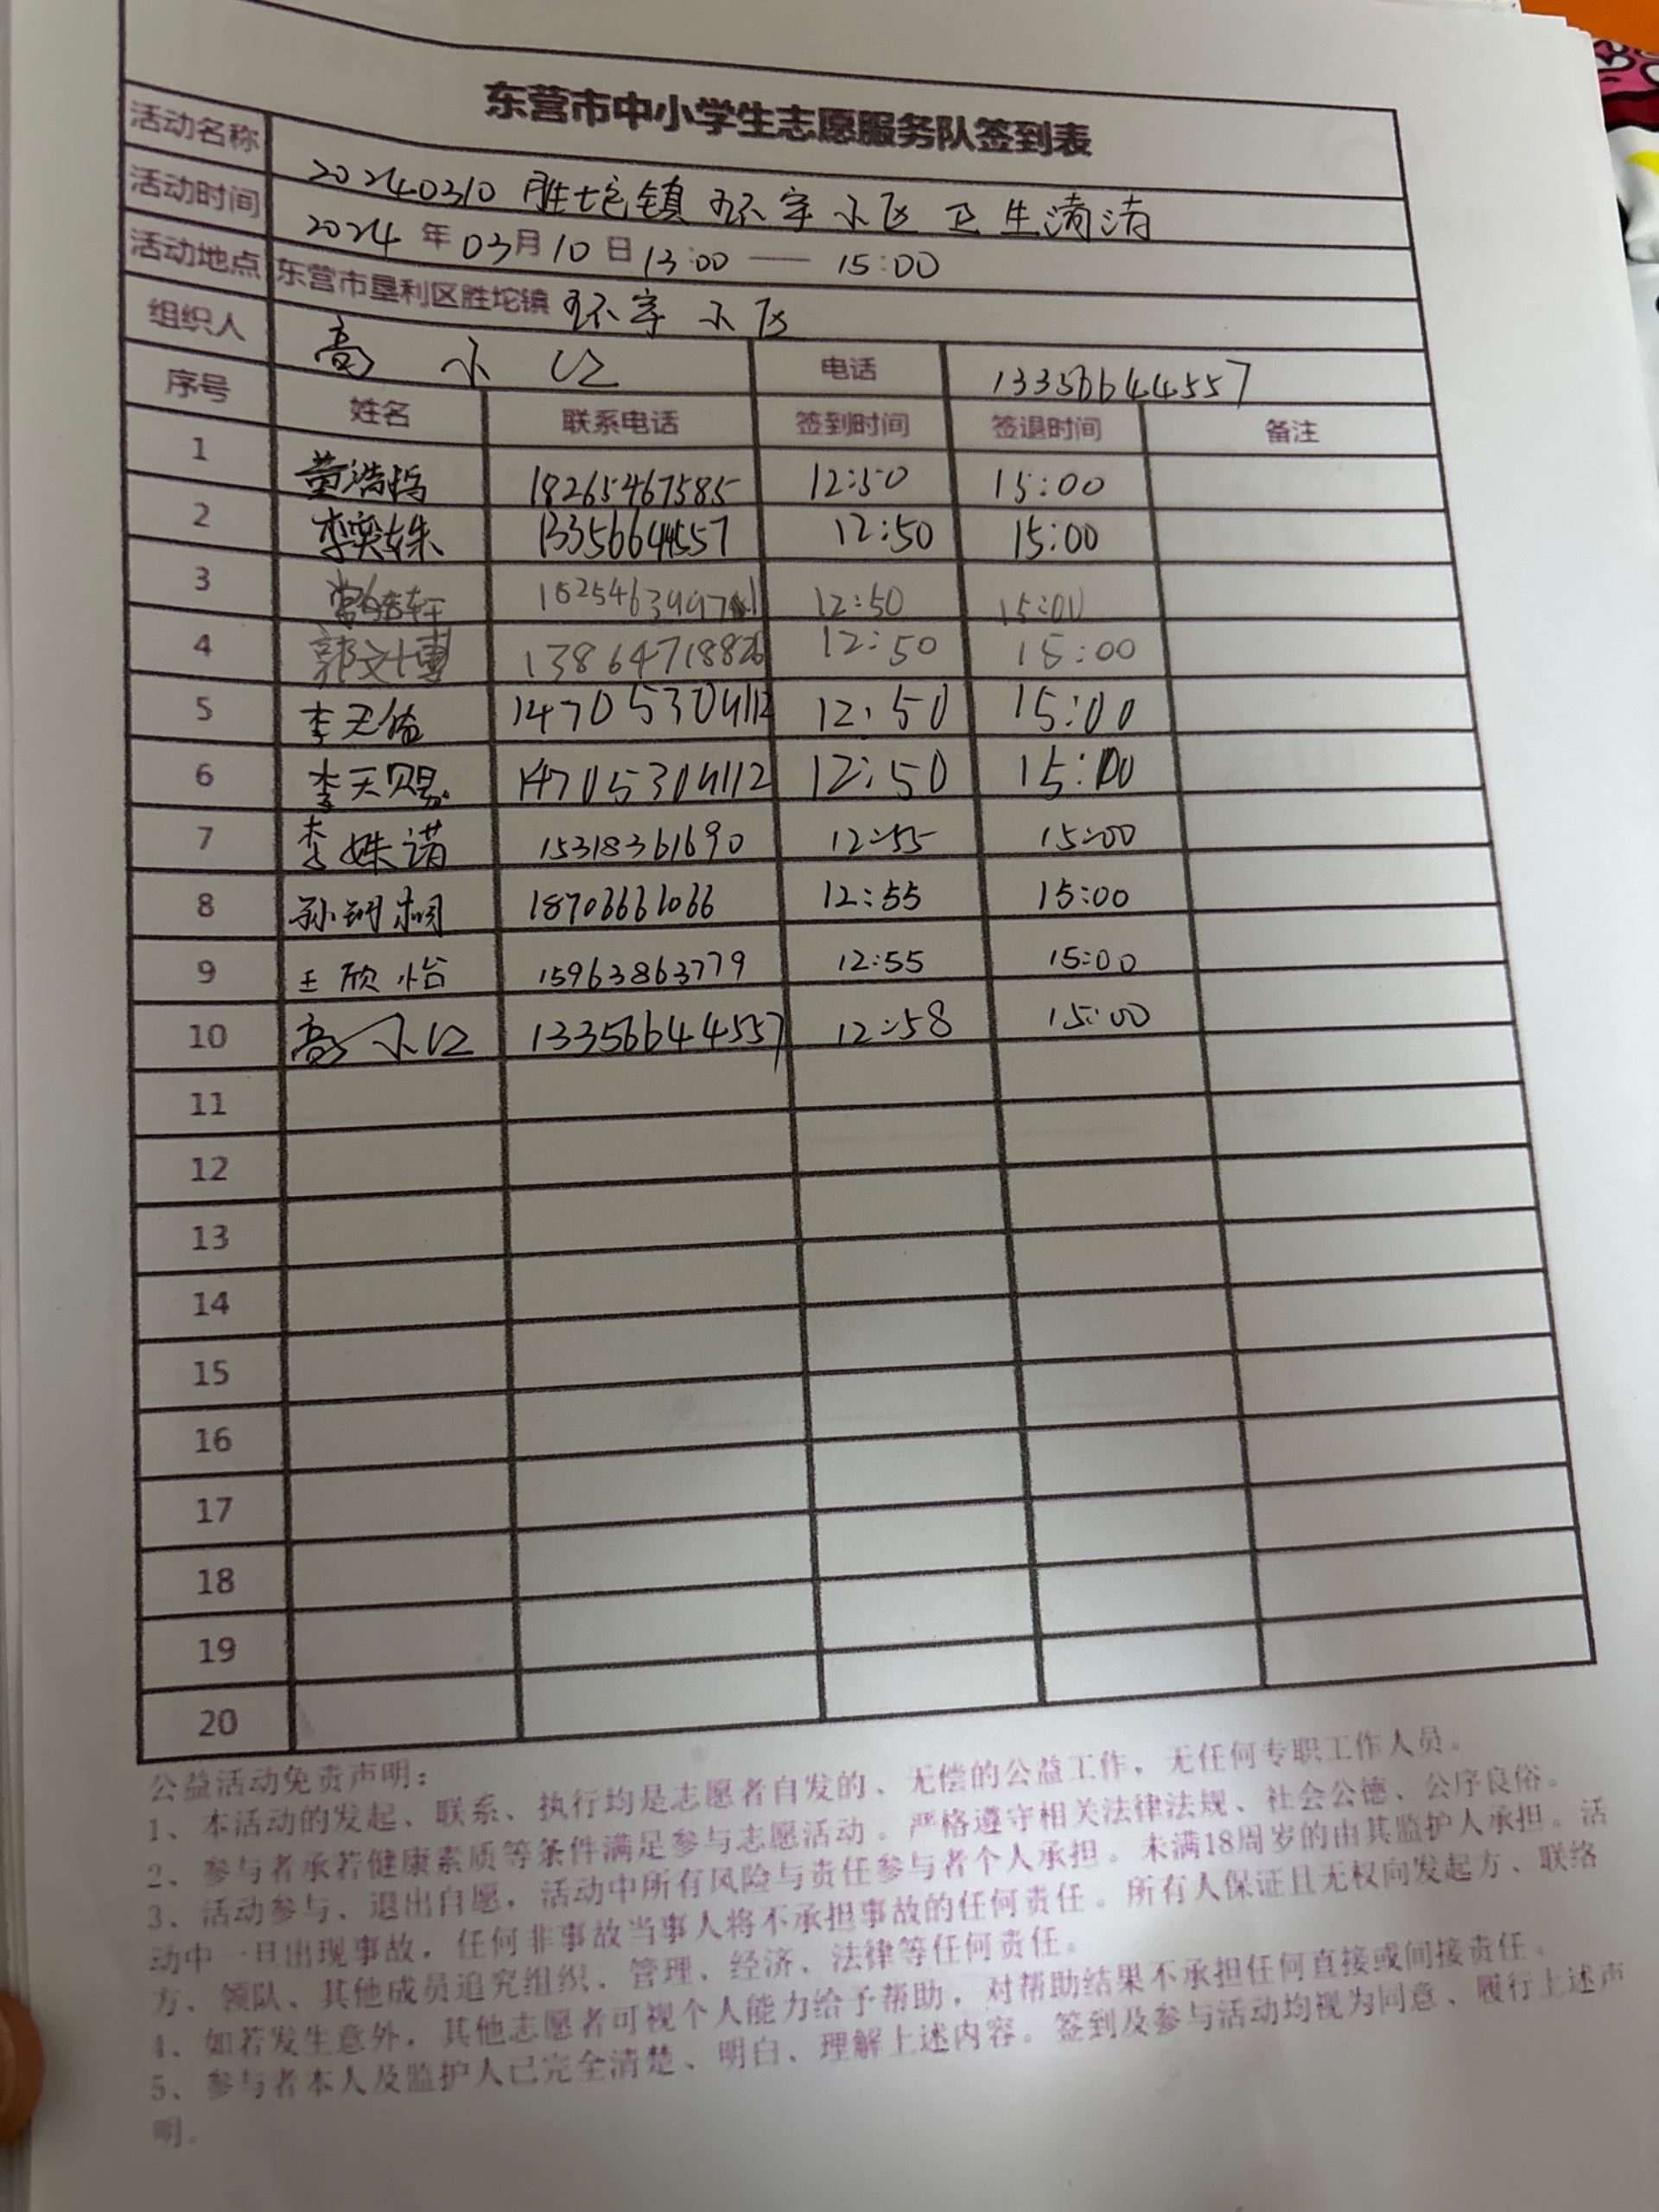 东营市中小学生志愿服务队签到表
活动名称 20240310 胜坨镇 环宇 小区 卫生清洁
活动时间 2024 年 03月 10 日 13:00 —— 15:00
活动地点 东营市垦利区胜坨镇 环宇 小区
组织人 高 小 红 电话 13356644557
序号 姓名 联系电话 签到时间 签退时间 备注
1 18265467585 12:50 15:00
2 李奕姝 13356644557 12:50 15:00
3 12:50 15:00
4 郭文博 12:50 15:00
5 李天佑 14705304112 12:50 15:00
6 李天赐 14705304112 12:50 15:00
7 李姝诺 15318361690 12:55 15:00
8 孙玥桐 18706661066 12:55 15:00
9 王欣怡 15963863779 12:55 15:00
10 高小红 13356644557 12:58 15:00
11
12
13
14
15
16
17
18
19
20
公益活动免责声明：
1、本活动的发起、联系、执行均是志愿者自发的、无偿的公益工作，无任何专职工作人员。
2、参与者承若健康素质等条件满足参与志愿活动。严格遵守相关法律法规、社会公德、公序良俗。
3、活动参与、退出自愿，活动中所有风险与责任参与者个人承担。未满18周岁的由其监护人承担。活
动中一旦出现事故，任何非事故当事人将不承担事故的任何责任。所有人保证且无权向发起方、联络
方、领队、其他成员追究组织、管理、经济、法律等任何责任。
4、如若发生意外，其他志愿者可视个人能力给予帮助，对帮助结果不承担任何直接或间接责任。
5、参与者本人及监护人已完全清楚、明白、理解上述内容。签到及参与活动均视为同意、履行上述声
明。